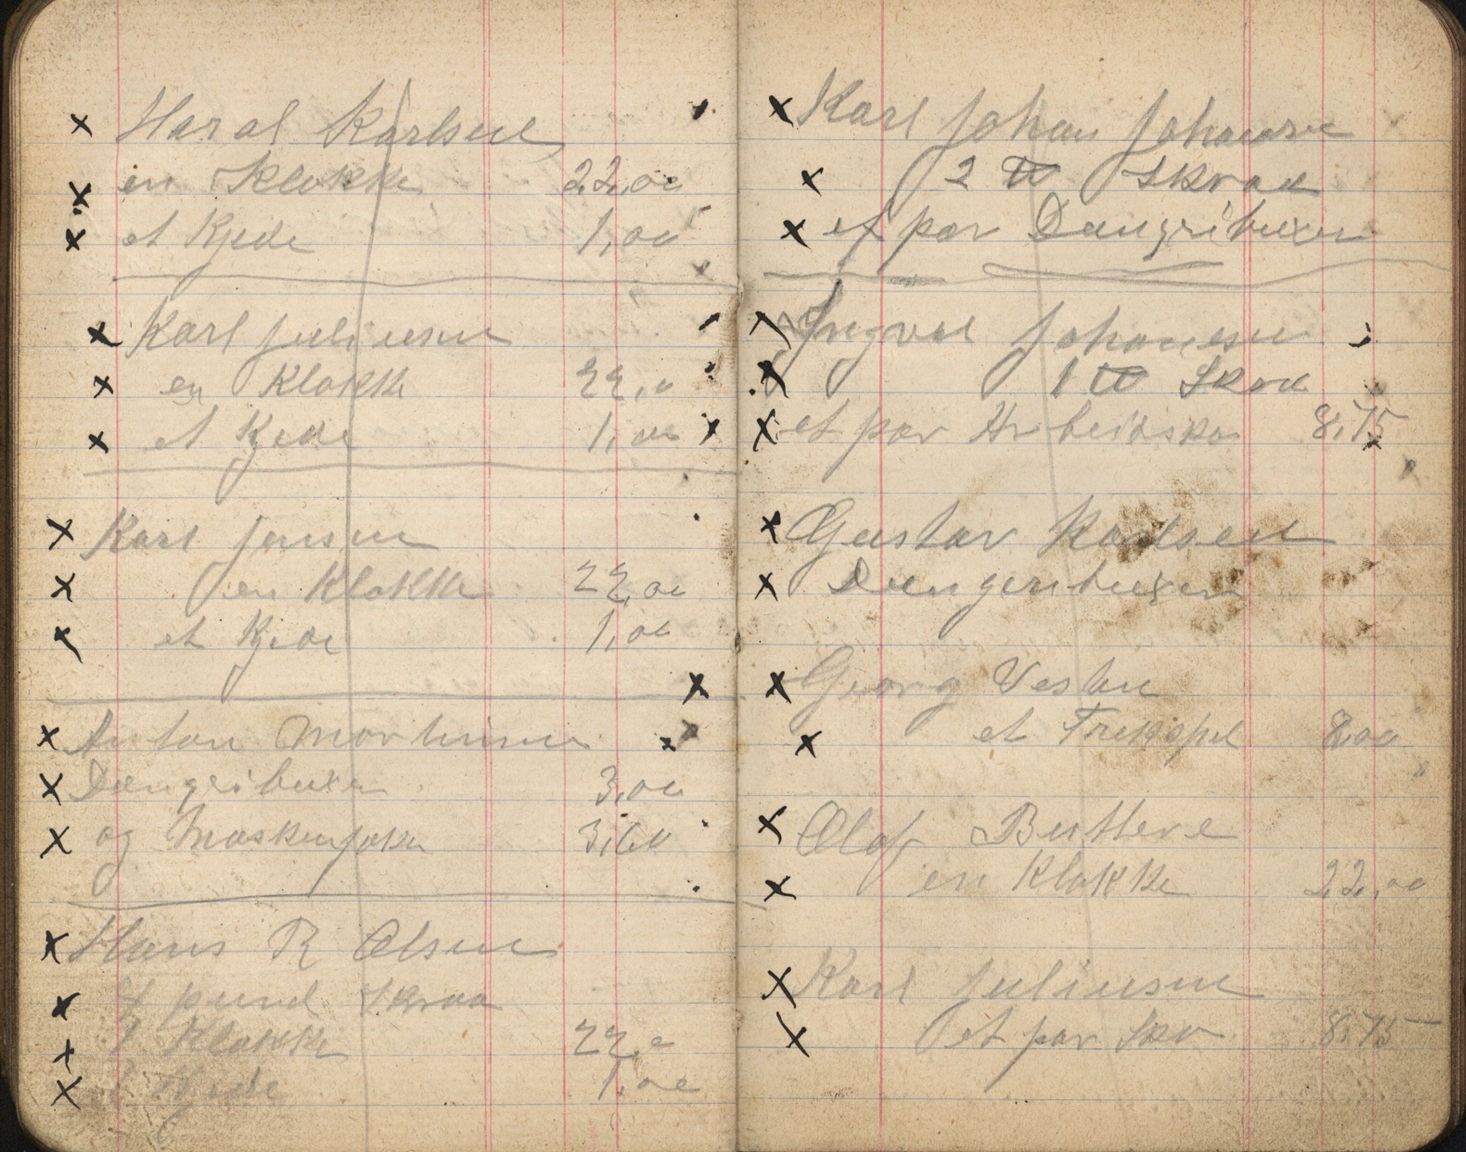 Haral Karlsen
en Klokke 22,00
et Kjede 1,00
Karl Juliusen
en Klokke 22,0
et Kjede 1,00
Karl Jensen
en Klokke 22,00
et Kjede 1,00
Anton Mortensen
Dængribuxer 3,00
og Maskenjakke 3,60
Hans R Olsen
pund Skraa
1 Klokke 22,0
1 Kjede 1,00
Karl Johan Johansen
2 ℔ Skraa
et par Dængribuxer
Ingval Johansen
1 ℔ Skraa
et par Arbeidsko 8,75
Gustav Karlsen
Dængeribuxer
Georg Vesten
et Trekspel 8,00
Olof Buttere
en Klokke 22,00
Karl Juliusen
et par Sko 8,75